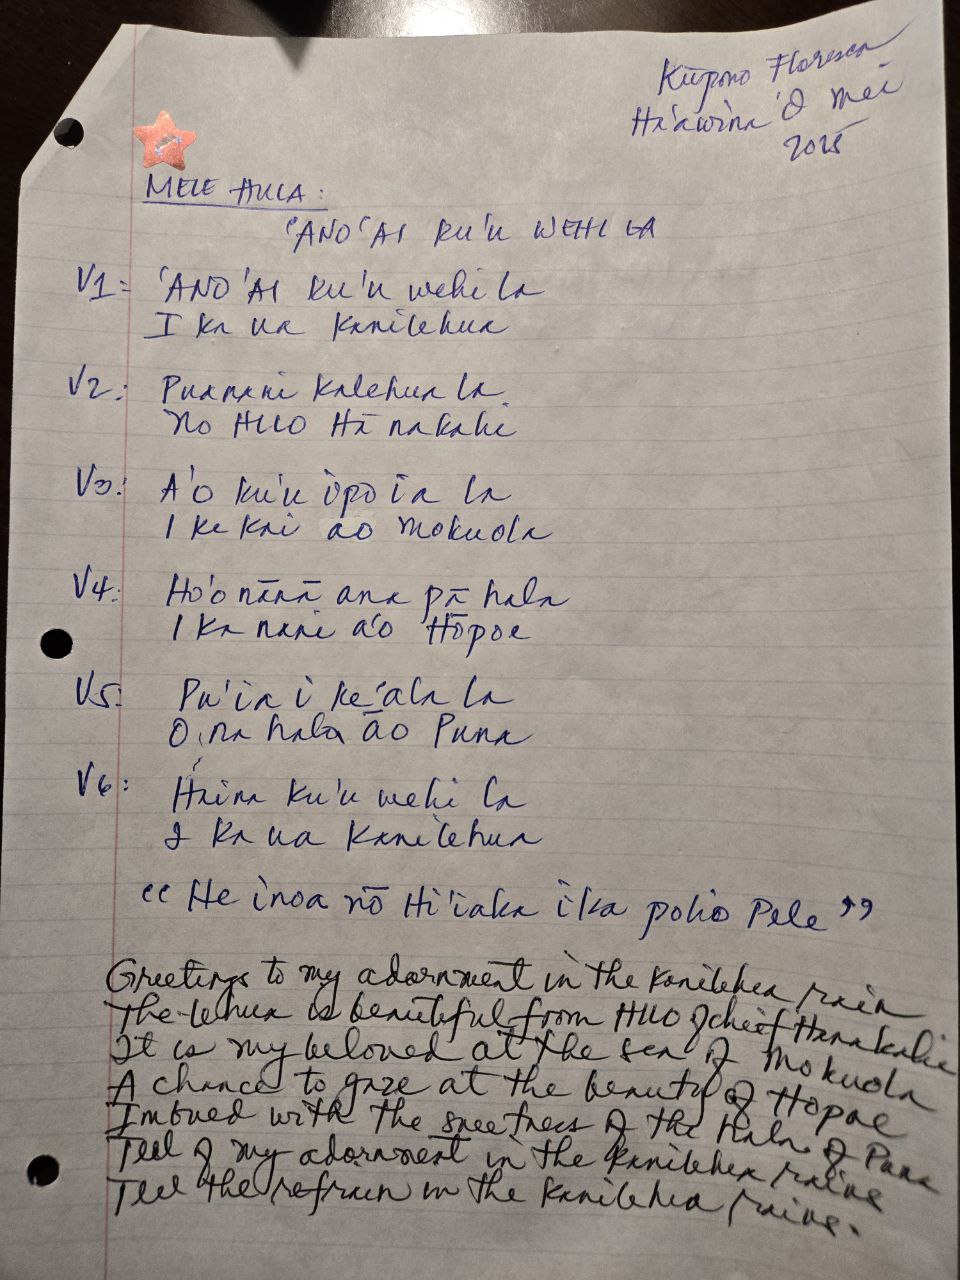 Kūpono Floresca
Ha'awina 'O mei
2025
MELE HULA:
'ANO'AI KU'U WEHI LA
V1: 'ANO'AI Ku'u wehi la
I ka ua Kanilehua
V2: Puanani kalehua la
No HILO Hānakahi
V3: A'o ku'u ipo ia la
I ke kai ao Mokuola
V4: Ho'onānā ana pā hala
I ka nani a'o Hōpoe
V5: Pu'ia i ke'ala la
O na hala āo Puna
V6: Haina ku'u wehi la
I ka ua Kanilehua
“He inoa nō Hi'iaka i ka poho Pele”
Greetings to my adornment in the Kanilehea rain
The lehua is beautiful from HILO of chief Hanakahi
It is my beloved at the sea of Mokuola
A chance to gaze at the beauty of Hopoe
Imbued with the sweetness of the hala of Puna
Tell of my adornment in the Kanilehea raine
Tell the refrain in the Kanilehea raine.